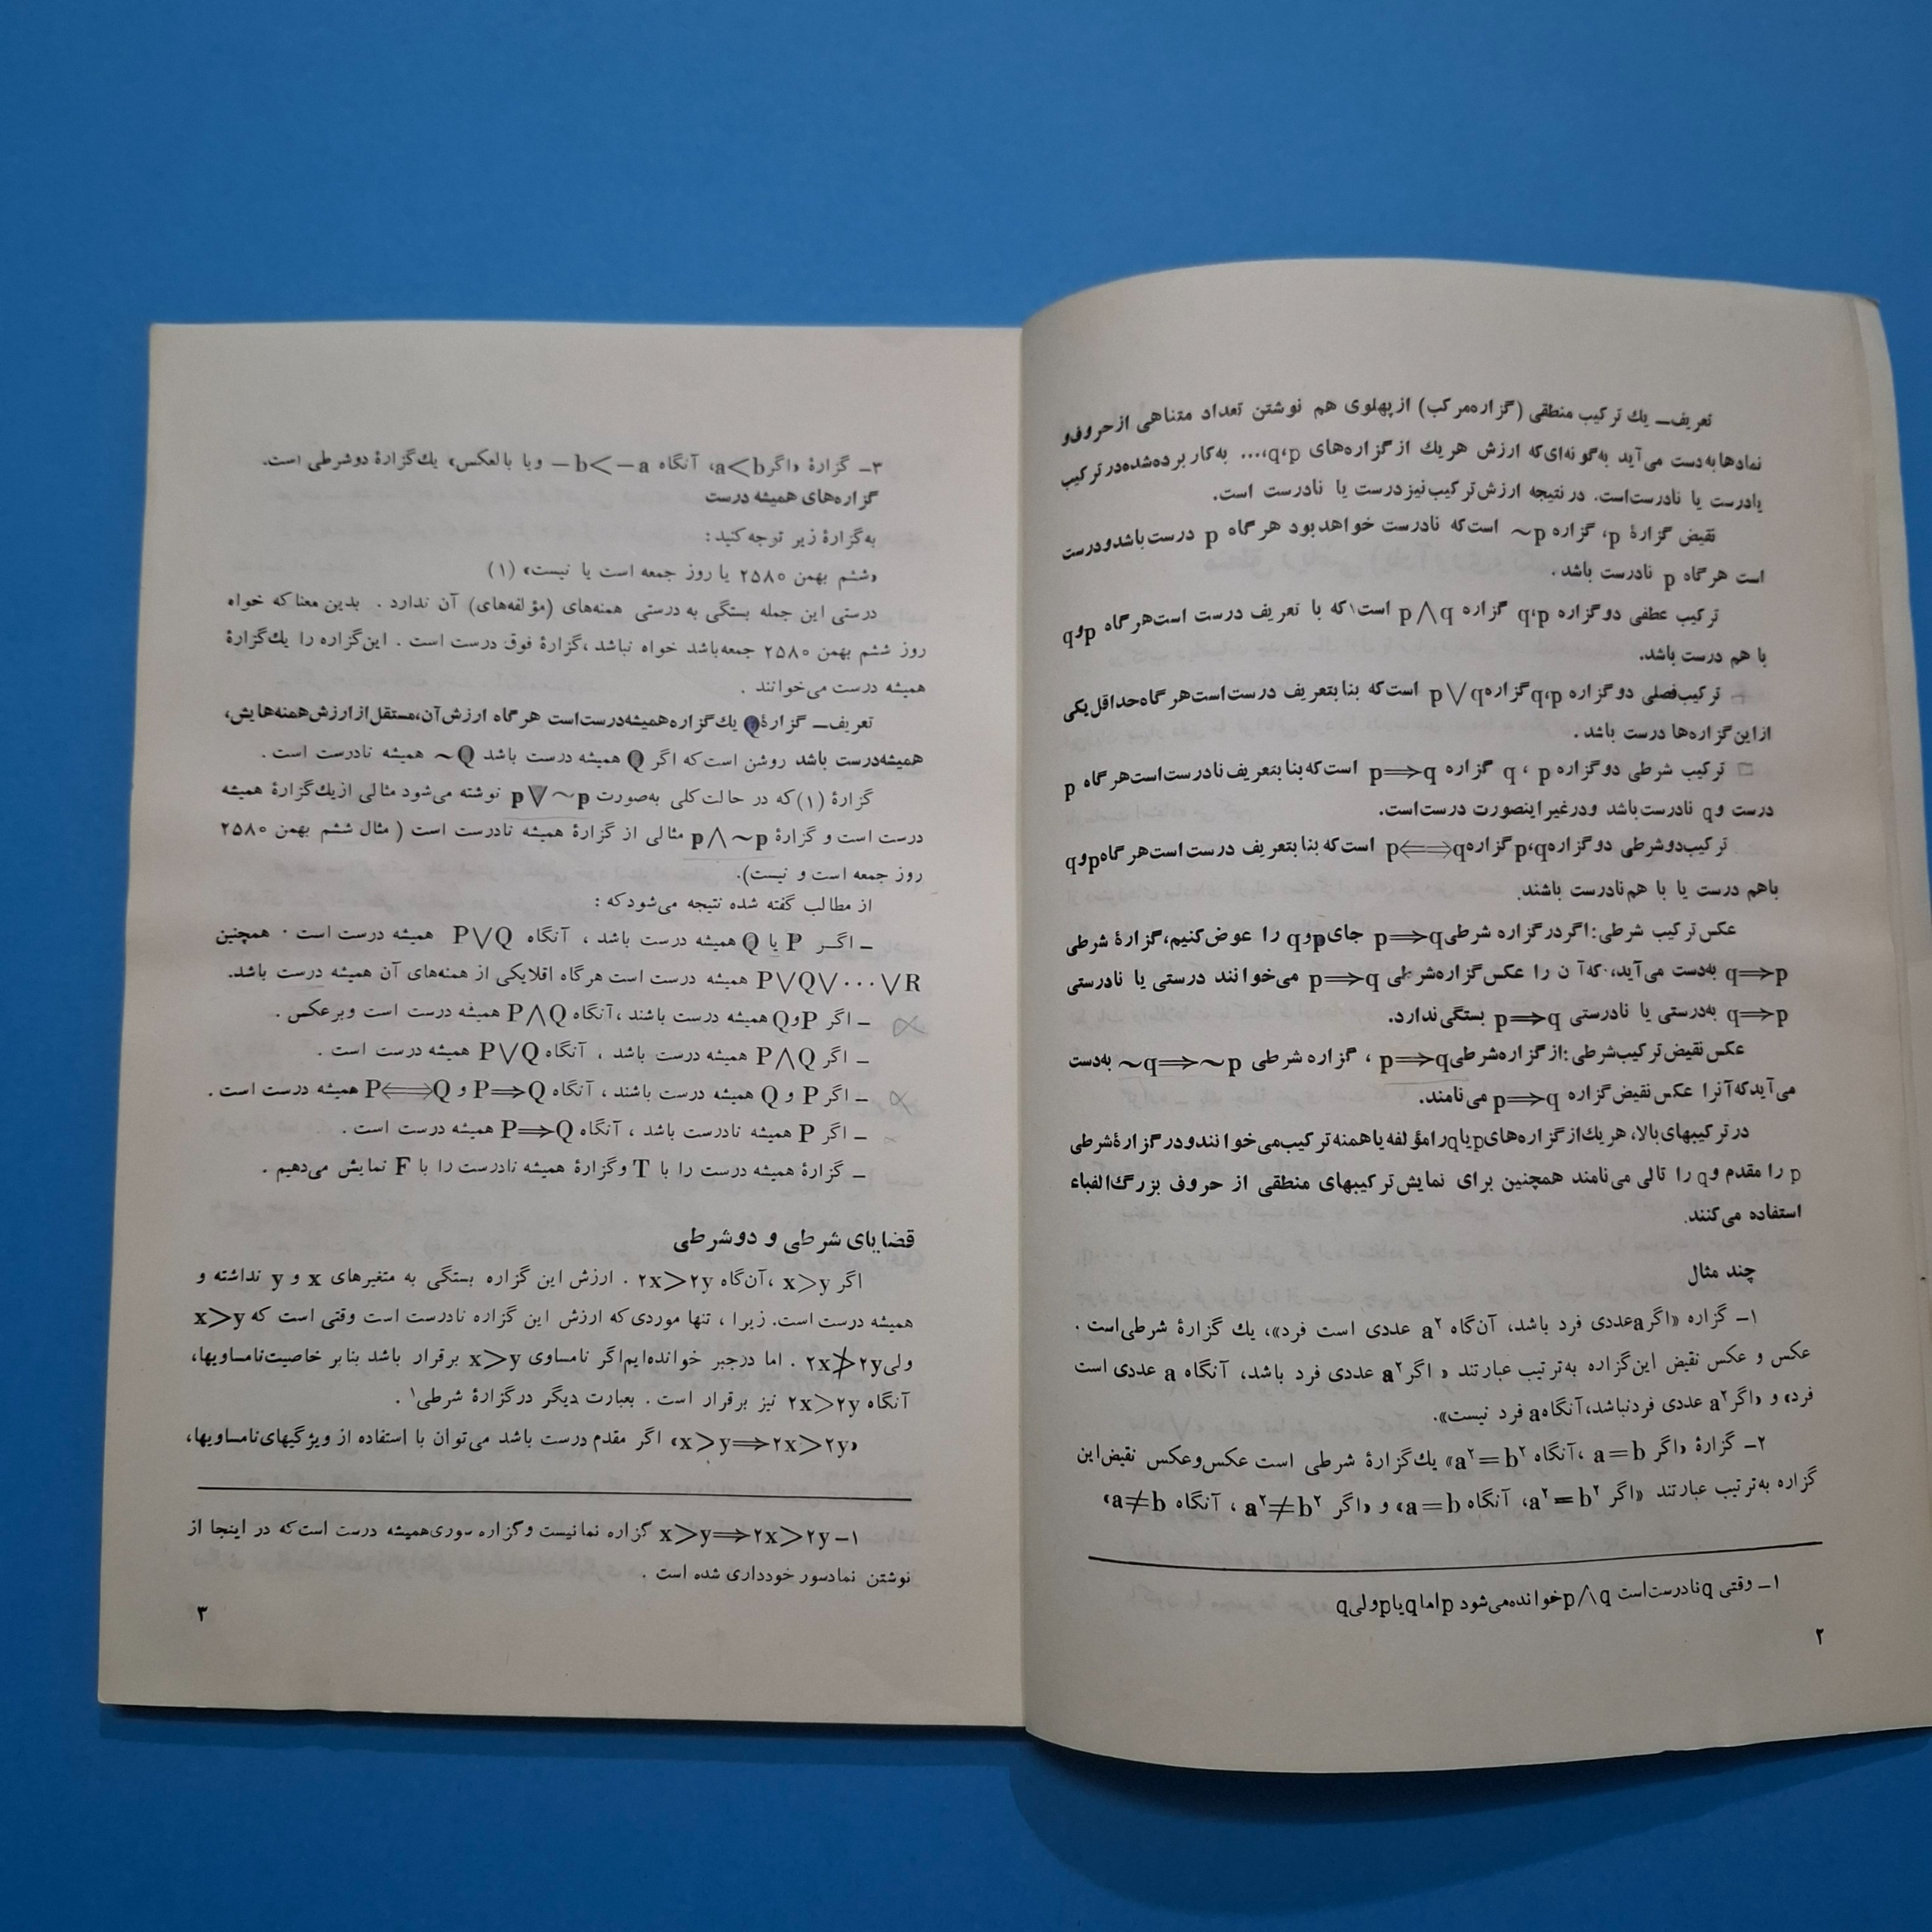 تعریف ـ یك ترکیب منطقی (گزاره مرکب) از پهلوی هم نوشتن تعداد متناهی از حروف و
نمادها به دست می‌آید به‌گونه‌ای‌که ارزش هر یك از گزاره‌های p،q،... به‌کار برده شده در ترکیب
یا درست یا نادرست است. در نتیجه ارزش ترکیب نیز درست یا نادرست است.
نقیض گزارهٔ p، گزاره ~p است که نادرست خواهد بود هر گاه p درست باشد و درست
است هر گاه p نادرست باشد .
ترکیب عطفی دو گزاره p،q گزاره p∧q است۱ که با تعریف درست است هر گاه p و q
با هم درست باشد.
ترکیب فصلی دو گزاره p،q گزاره p∨q است که بنا بتعریف درست است هر گاه حداقل یکی
از این گزاره‌ها درست باشد .
ترکیب شرطی دو گزاره p ، q گزاره p⟹q است که بنا بتعریف نادرست است هر گاه p
درست و q نادرست باشد و در غیر اینصورت درست است.
ترکیب دوشرطی دو گزاره p،q گزاره p⟺q است که بنا بتعریف درست است هر گاه p و q
باهم درست یا با هم نادرست باشند.
عکس ترکیب شرطی: اگر در گزاره شرطی p⟹q جای p و q را عوض کنیم، گزارهٔ شرطی
q⟹p به‌دست می‌آید، که آن را عکس گزاره شرطی p⟹q می‌خوانند درستی یا نادرستی
q⟹p به‌درستی یا نادرستی p⟹q بستگی ندارد.
عکس نقیض ترکیب شرطی: از گزاره شرطی p⟹q ، گزاره شرطی ~q⟹~p به‌دست
می‌آید که آنرا عکس نقیض گزاره p⟹q می‌نامند.
در ترکیبهای بالا، هر یك از گزاره‌های p یا q را مؤلفه یا همنه ترکیب می‌خوانند و در گزارهٔ شرطی
p را مقدم و q را تالی می‌نامند همچنین برای نمایش ترکیبهای منطقی از حروف بزرگ الفباء
استفاده می‌کنند.
چند مثال
۱ـ گزاره «اگر a عددی فرد باشد، آن‌گاه a² عددی است فرد»، یك گزارهٔ شرطی است .
عکس و عکس نقیض این گزاره به‌ترتیب عبارتند « اگر a² عددی فرد باشد، آنگاه a عددی است
فرد» و «اگر a² عددی فرد نباشد، آنگاه a فرد نیست».
۲ـ گزارهٔ «اگر a=b ، آنگاه a²=b²» یك گزارهٔ شرطی است عکس و عکس نقیض این
گزاره به‌ترتیب عبارتند «اگر a²=b²، آنگاه a=b» و «اگر a²≠b² ، آنگاه a≠b»
۱ـ وقتی q نادرست است p∧q خوانده می‌شود p اما q یا p ولی q
۲
۳ـ گزارهٔ «اگر a<b، آنگاه −b<−a و یا بالعکس» یك گزارهٔ دوشرطی است.
گزاره‌های همیشه درست
به‌گزارهٔ زیر توجه کنید:
«ششم بهمن ۲۵۸۰ یا روز جمعه است یا نیست» (۱)
درستی این جمله بستگی به درستی همنه‌های (مؤلفه‌های) آن ندارد . بدین معنا که خواه
روز ششم بهمن ۲۵۸۰ جمعه باشد خواه نباشد ،گزارهٔ فوق درست است . این گزاره را یك گزارهٔ
همیشه درست می‌خوانند .
تعریف ـ گزارهٔ Q یك گزاره همیشه درست است هر گاه ارزش آن، مستقل از ارزش همنه‌هایش،
همیشه درست باشد روشن است که اگر Q همیشه درست باشد ~Q همیشه نادرست است .
گزارهٔ (۱) که در حالت کلی به‌صورت p∨~p نوشته می‌شود مثالی از یك گزارهٔ همیشه
درست است و گزارهٔ p∧~p مثالی از گزارهٔ همیشه نادرست است ( مثال ششم بهمن ۲۵۸۰
روز جمعه است و نیست).
از مطالب گفته شده نتیجه می‌شود که :
ـ اگر P یا Q همیشه درست باشد ، آنگاه P∨Q همیشه درست است . همچنین
P∨Q∨...∨R همیشه درست است هر گاه اقلایکی از همنه‌های آن همیشه درست باشد.
ـ اگر P و Q همیشه درست باشند ، آنگاه P∧Q همیشه درست است و برعکس .
ـ اگر P∧Q همیشه درست باشد ، آنگاه P∨Q همیشه درست است .
ـ اگر P و Q همیشه درست باشند ، آنگاه P⟹Q و P⟺Q همیشه درست است .
ـ اگر P همیشه نادرست باشد ، آنگاه P⟹Q همیشه درست است .
ـ گزارهٔ همیشه درست را با T و گزارهٔ همیشه نادرست را با F نمایش می‌دهیم .
قضایای شرطی و دوشرطی
اگر x>y ،آن‌گاه ۲x>۲y . ارزش این گزاره بستگی به متغیرهای x و y نداشته و
همیشه درست است. زیرا ، تنها موردی که ارزش این گزاره نادرست است وقتی است که x>y
ولی ۲x≯۲y . اما در جبر خوانده‌ایم اگر نامساوی x>y برقرار باشد بنا بر خاصیت نامساویها،
آنگاه ۲x>۲y نیز برقرار است . بعبارت دیگر در گزارهٔ شرطی۱ .
«x>y⟹۲x>۲y» اگر مقدم درست باشد می‌توان با استفاده از ویژگیهای نامساویها،
۱ـ x>y⟹۲x>۲y گزاره نما نیست و گزاره سوری همیشه درست است که در اینجا از
نوشتن نماد سور خودداری شده است .
۳